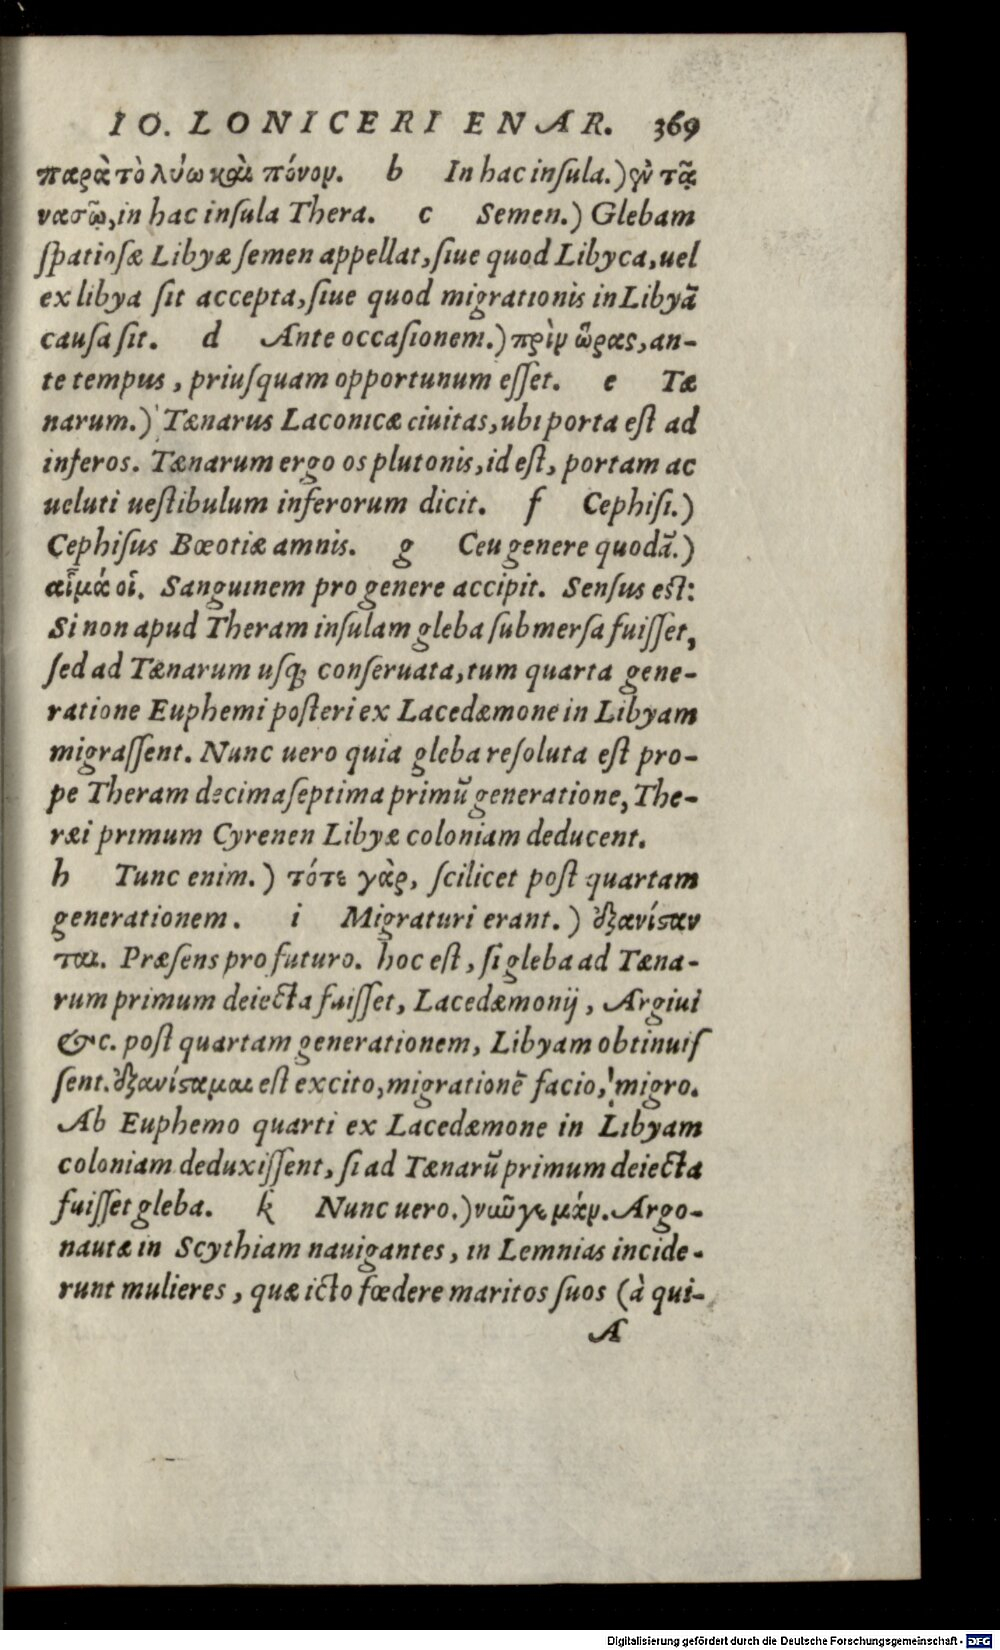 IO. LONICERI ENAR. 369
παρὰ τὸ λύω καὶ πόνον. b In hac inſula.) ἐν τᾷ
νασῷ, in hac inſula Thera. c Semen.) Glebam
ſpatioſæ Libyæ ſemen appellat, ſiue quod Libyca, uel
ex libya ſit accepta, ſiue quod migrationis in Libyā
cauſa ſit. d Ante occaſionem.) πρὶν ὥρας, an-
te tempus, priuſquam opportunum eſſet. e Tæ
narum.) Tænarus Laconicæ ciuitas, ubi porta eſt ad
inferos. Tænarum ergo os plutonis, id eſt, portam ac
ueluti ueſtibulum inferorum dicit. f Cephiſi.)
Cephiſus Bœotiæ amnis. g Ceu genere quodā.)
αἷμά οἱ. Sanguinem pro genere accipit. Senſus est:
Si non apud Theram inſulam gleba ſubmerſa fuiſſet,
ſed ad Tænarum uſq; conſeruata, tum quarta gene-
ratione Euphemi poſteri ex Lacedæmone in Libyam
migraſſent. Nunc uero quia gleba reſoluta eſt pro-
pe Theram decimaſeptima primū generatione, The-
ræi primum Cyrenen Libyæ coloniam deducent.
h Tunc enim.) τότε γὰρ, ſcilicet poſt quartam
generationem. i Migraturi erant.) ἐξανίσταν
ται. Præſens pro futuro. hoc eſt, ſi gleba ad Tæna-
rum primum deiecta fuiſſet, Lacedæmonij, Argiui
&c. poſt quartam generationem, Libyam obtinuiſ
ſent. ἐξανίσταμαι est excito, migrationē facio, migro.
Ab Euphemo quarti ex Lacedæmone in Libyam
coloniam deduxiſſent, ſi ad Tænarū primum deiecta
fuiſſet gleba. k Nunc uero.) νῦν γε μάν. Argo-
nautæ in Scythiam nauigantes, in Lemnias incide-
runt mulieres, quæ icto fœdere maritos ſuos (à qui-
A
Digitalisierung gefördert durch die Deutsche Forschungsgemeinschaft - DFG